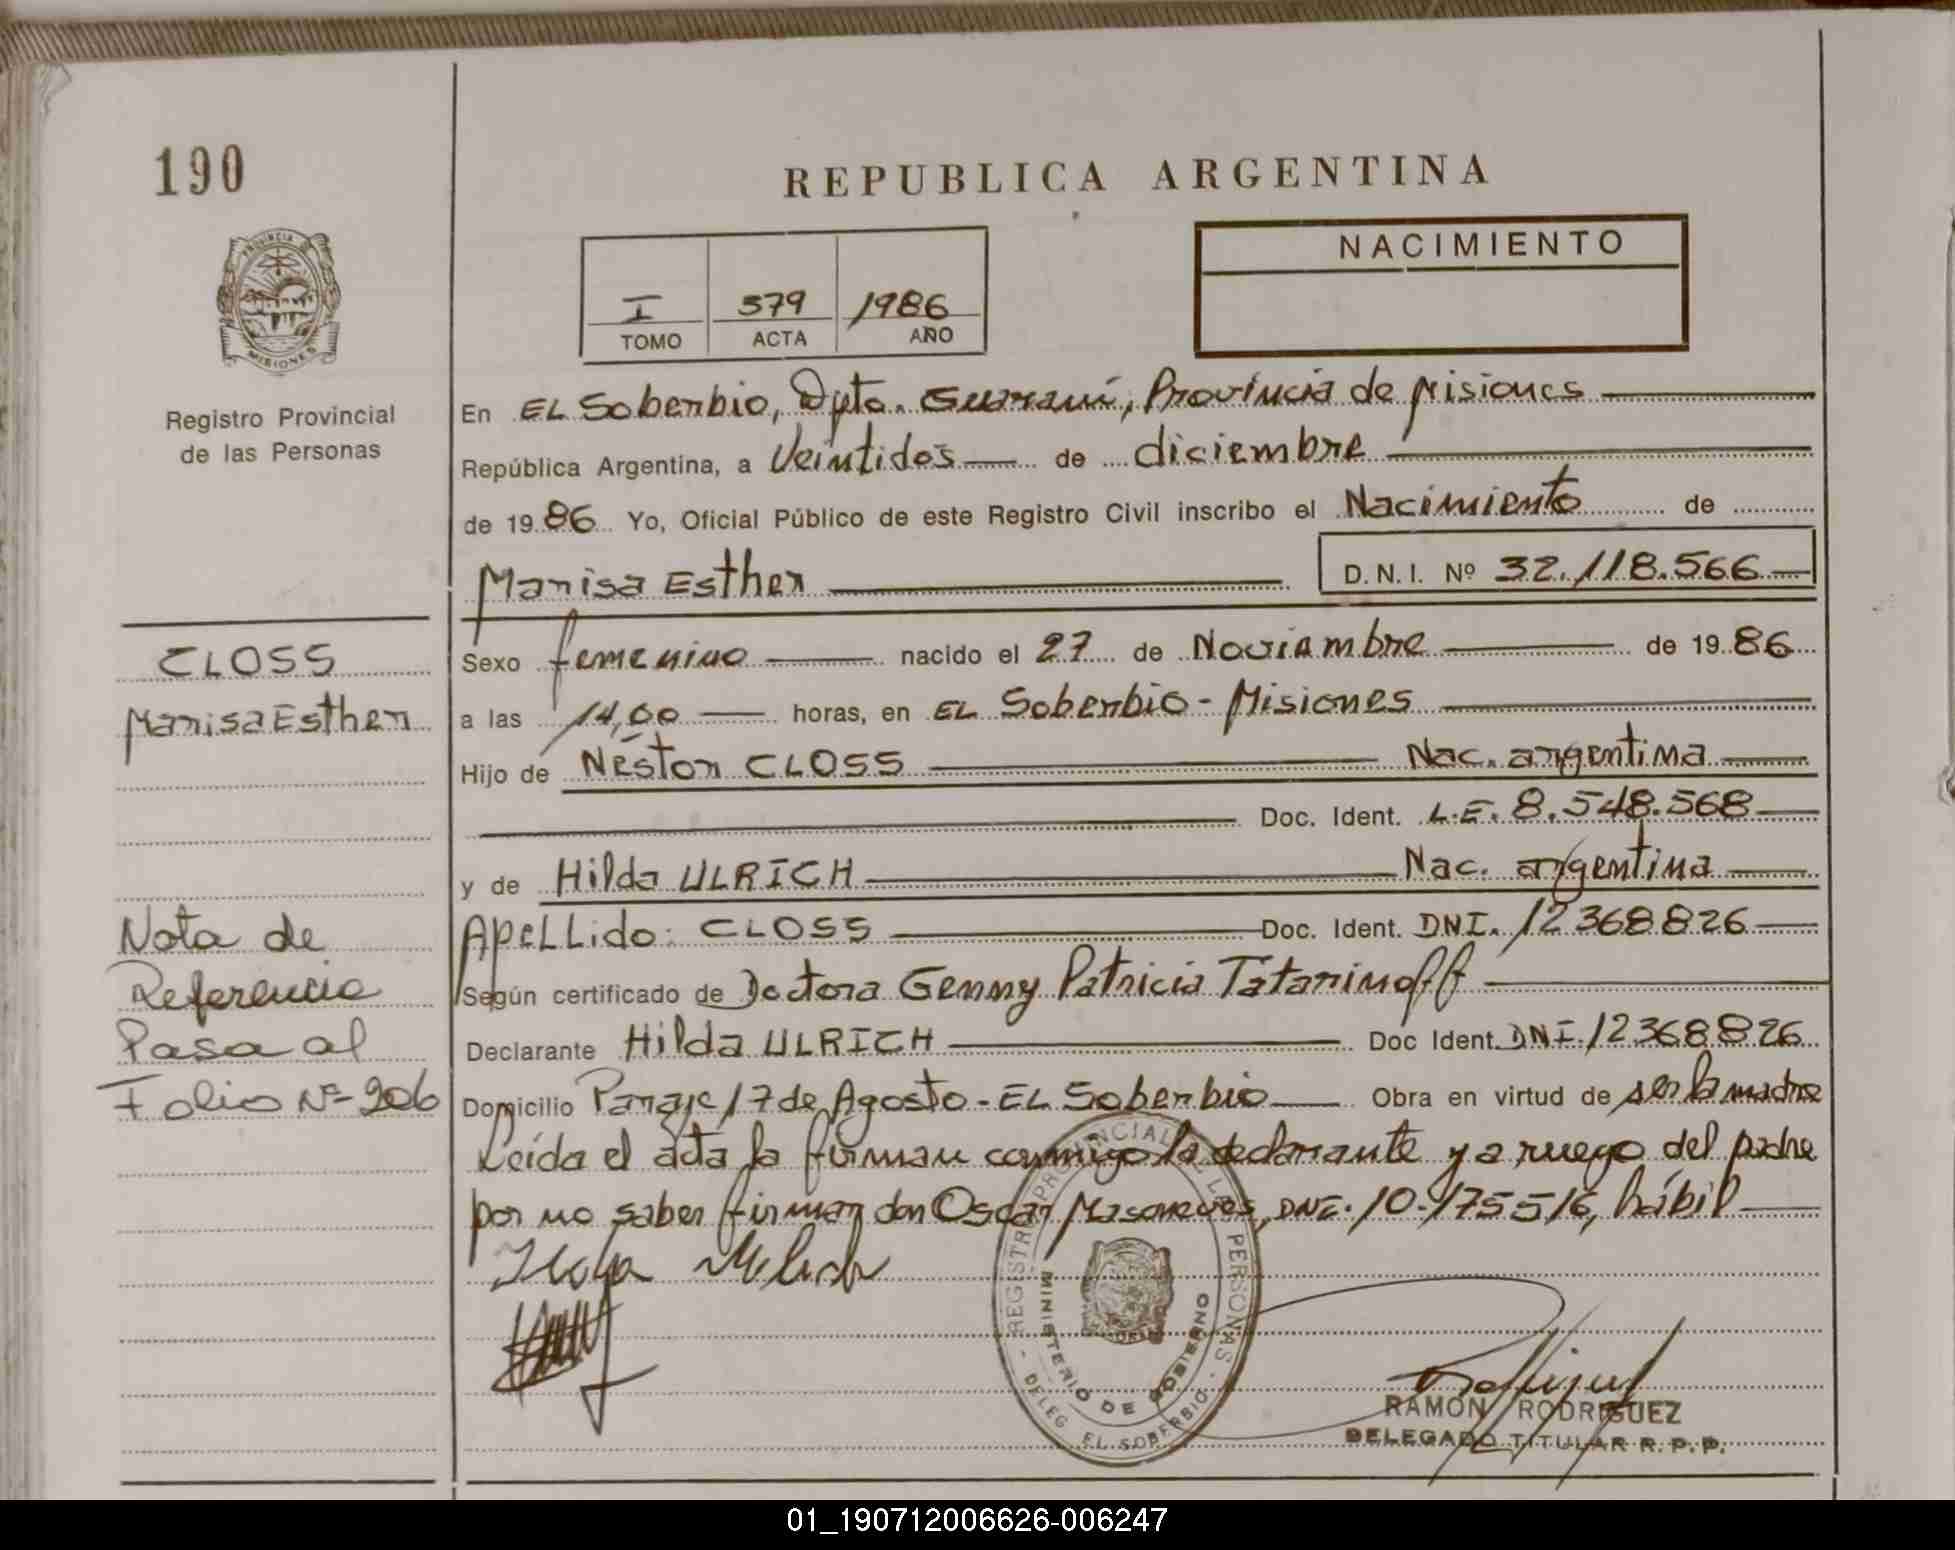 190
REPUBLICA ARGENTINA
NACIMIENTO
I 379 1986
TOMO ACTA AÑO
PROVINCIA DE MISIONES
Registro Provincial
de las Personas
En EL Soberbio, Dpto. Guaraní, Provincia de Misiones
República Argentina, a Veintidos de diciembre
de 1986 Yo, Oficial Público de este Registro Civil inscribo el Nacimiento de
Marisa Esther D.N.I. Nº 32.118.566
CLOSS
Marisa Esther
Sexo femenino nacido el 27 de Noviembre de 1986
a las 14,00 horas, en EL Soberbio - Misiones
Hijo de Néstor CLOSS Nac. argentina
Doc. Ident. L.E. 8.548.568
y de Hilda ULRICH Nac. argentina
Apellido: CLOSS Doc. Ident. DNI. 12368826
Según certificado de Doctora Genny Patricia Tatarinoff
Declarante Hilda ULRICH Doc Ident. DNI. 12368826
Domicilio Paraje 17 de Agosto - EL Soberbio Obra en virtud de ser la madre
Leída el acta la firman conmigo la declarante y a ruego del padre
por no saber firmar don Oscar DNI. 10.175516, hábil
Nota de
Referencia
Pasa al
Folio Nº 206
REGISTRO PROVINCIAL DE LAS PERSONAS
MINISTERIO DE GOBIERNO
DELEG EL SOBERBIO
RAMON RODRIGUEZ
DELEGADO TITULAR R. P. P.
01_190712006626-006247